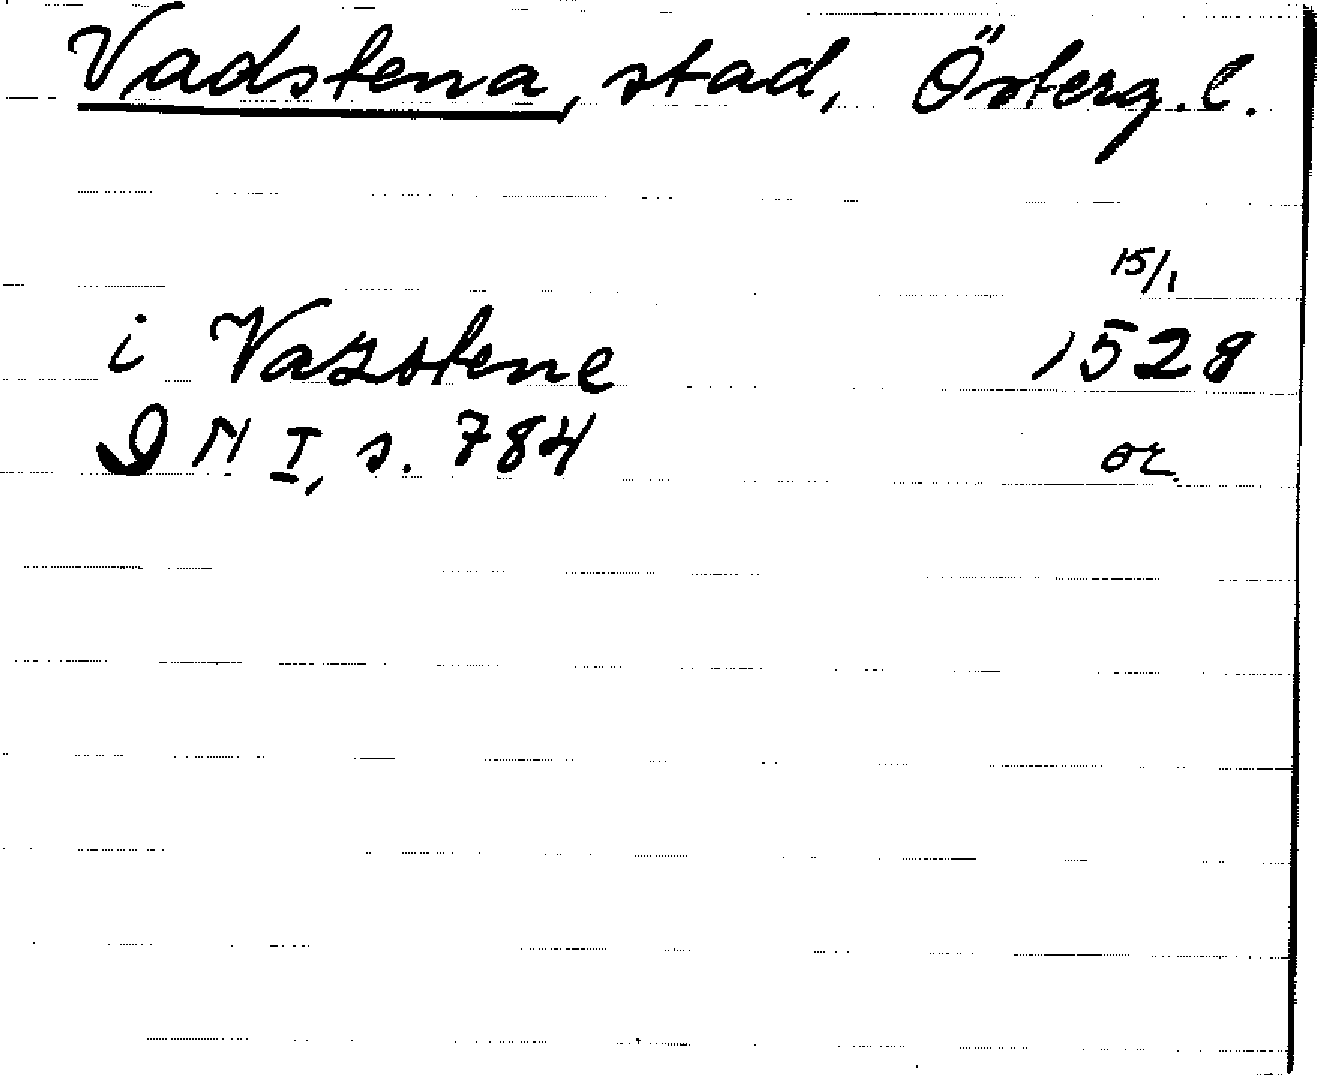 Vadstena, stad, Österg. l.
15/1
i Vazstene 1528
DN I, s. 784 or.